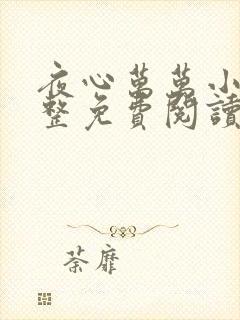 夜心萬萬小
整免費閱讀
荼靡